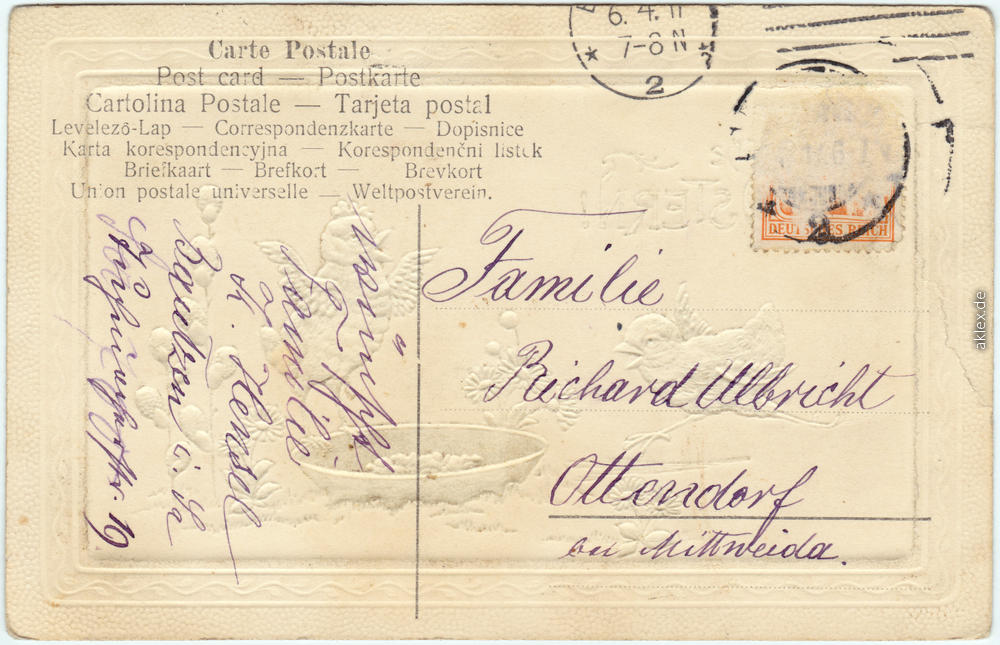 Carte Postale
Post card — Postkarte
Cartolina Postale — Tarjeta postal
Levelezö-Lap — Correspondenzkarte — Dopisnice
Karta korespondencyjna — Korespondenční listek
Briefkaart — Brefkort — Brevkort
Union postale universelle — Weltpostverein.
6.4.11
7-8 N
2
DEUTSCHES REICH
2
OSTERN!
Wünscht
Familie
K. Hensel
Bautzen i. Sa
19
Familie
Richard Ulbricht
Ottendorf
bei Mittweida.
aklex.de